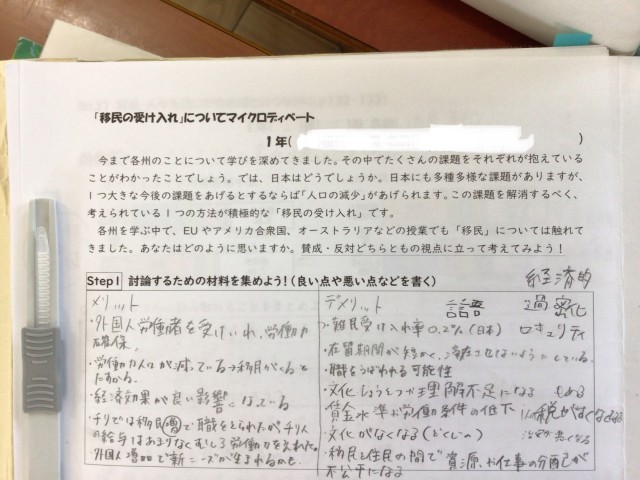 「移民の受け入れ」についてマイクロディベート
1年( )
今まで各州のことについて学びを深めてきました。その中でたくさんの課題をそれぞれが抱えている
ことがわかったことでしょう。では、日本はどうでしょうか。日本にも多種多様な課題がありますが、
1つ大きな今後の課題をあげるとするならば「人口の減少」があげられます。この課題を解消するべく、
考えられている1つの方法が積極的な「移民の受け入れ」です。
各州を学ぶ中で、EUやアメリカ合衆国、オーストラリアなどの授業でも「移民」については触れて
きました。あなたはどのように思いますか。賛成・反対どちらともの視点に立って考えてみよう!
Step1 討論するための材料を集めよう!(良い点や悪い点などを書く)
経済的
メリット
・外国人労働者を受け入れ、労働力
確保。
・労働力人口が減っている→移民がくると
たすかる。
・経済効果が良い影響になっている
・チリでは移民増で職をとられたがチリ人
の給与はあまりなくむしろ労働力を
・外国人増加で新ニーズが生まれるかも。
デメリット 語 過密化
・難民受け入れ率0.2%(日本) セキュリティ
・在留期間が短かく、滞在させないようにしている。
・職をうばわれる可能性
・文化 理解不足になる もめる
・賃金水準や労働条件の低下
・文化がなくなる(どくじの) 治安が悪くなる
・移民と住民の間で資源や仕事の分配が
不公平になる